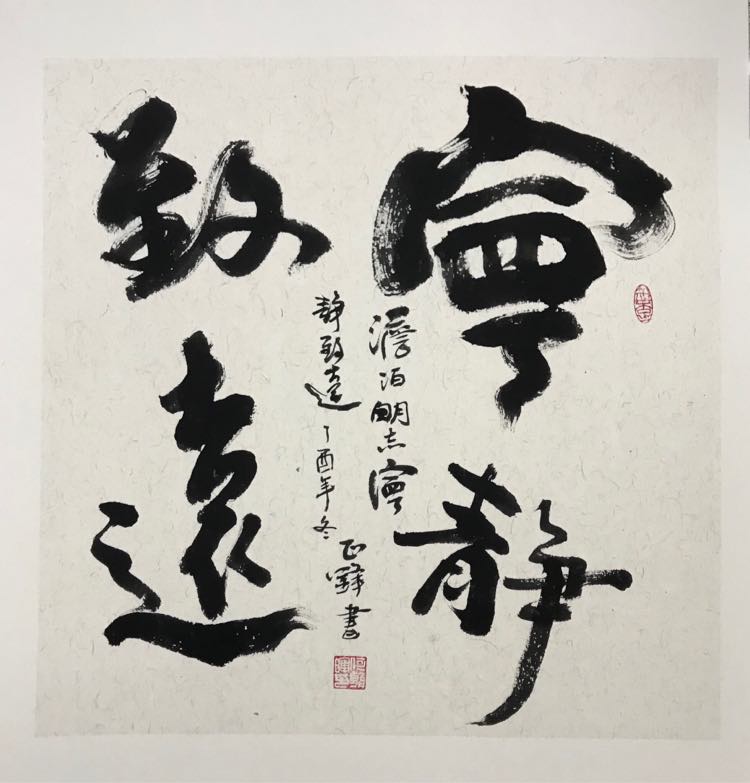 寧靜
致遠
澹泊明志寧
靜致遠丁酉年冬
正鋒書